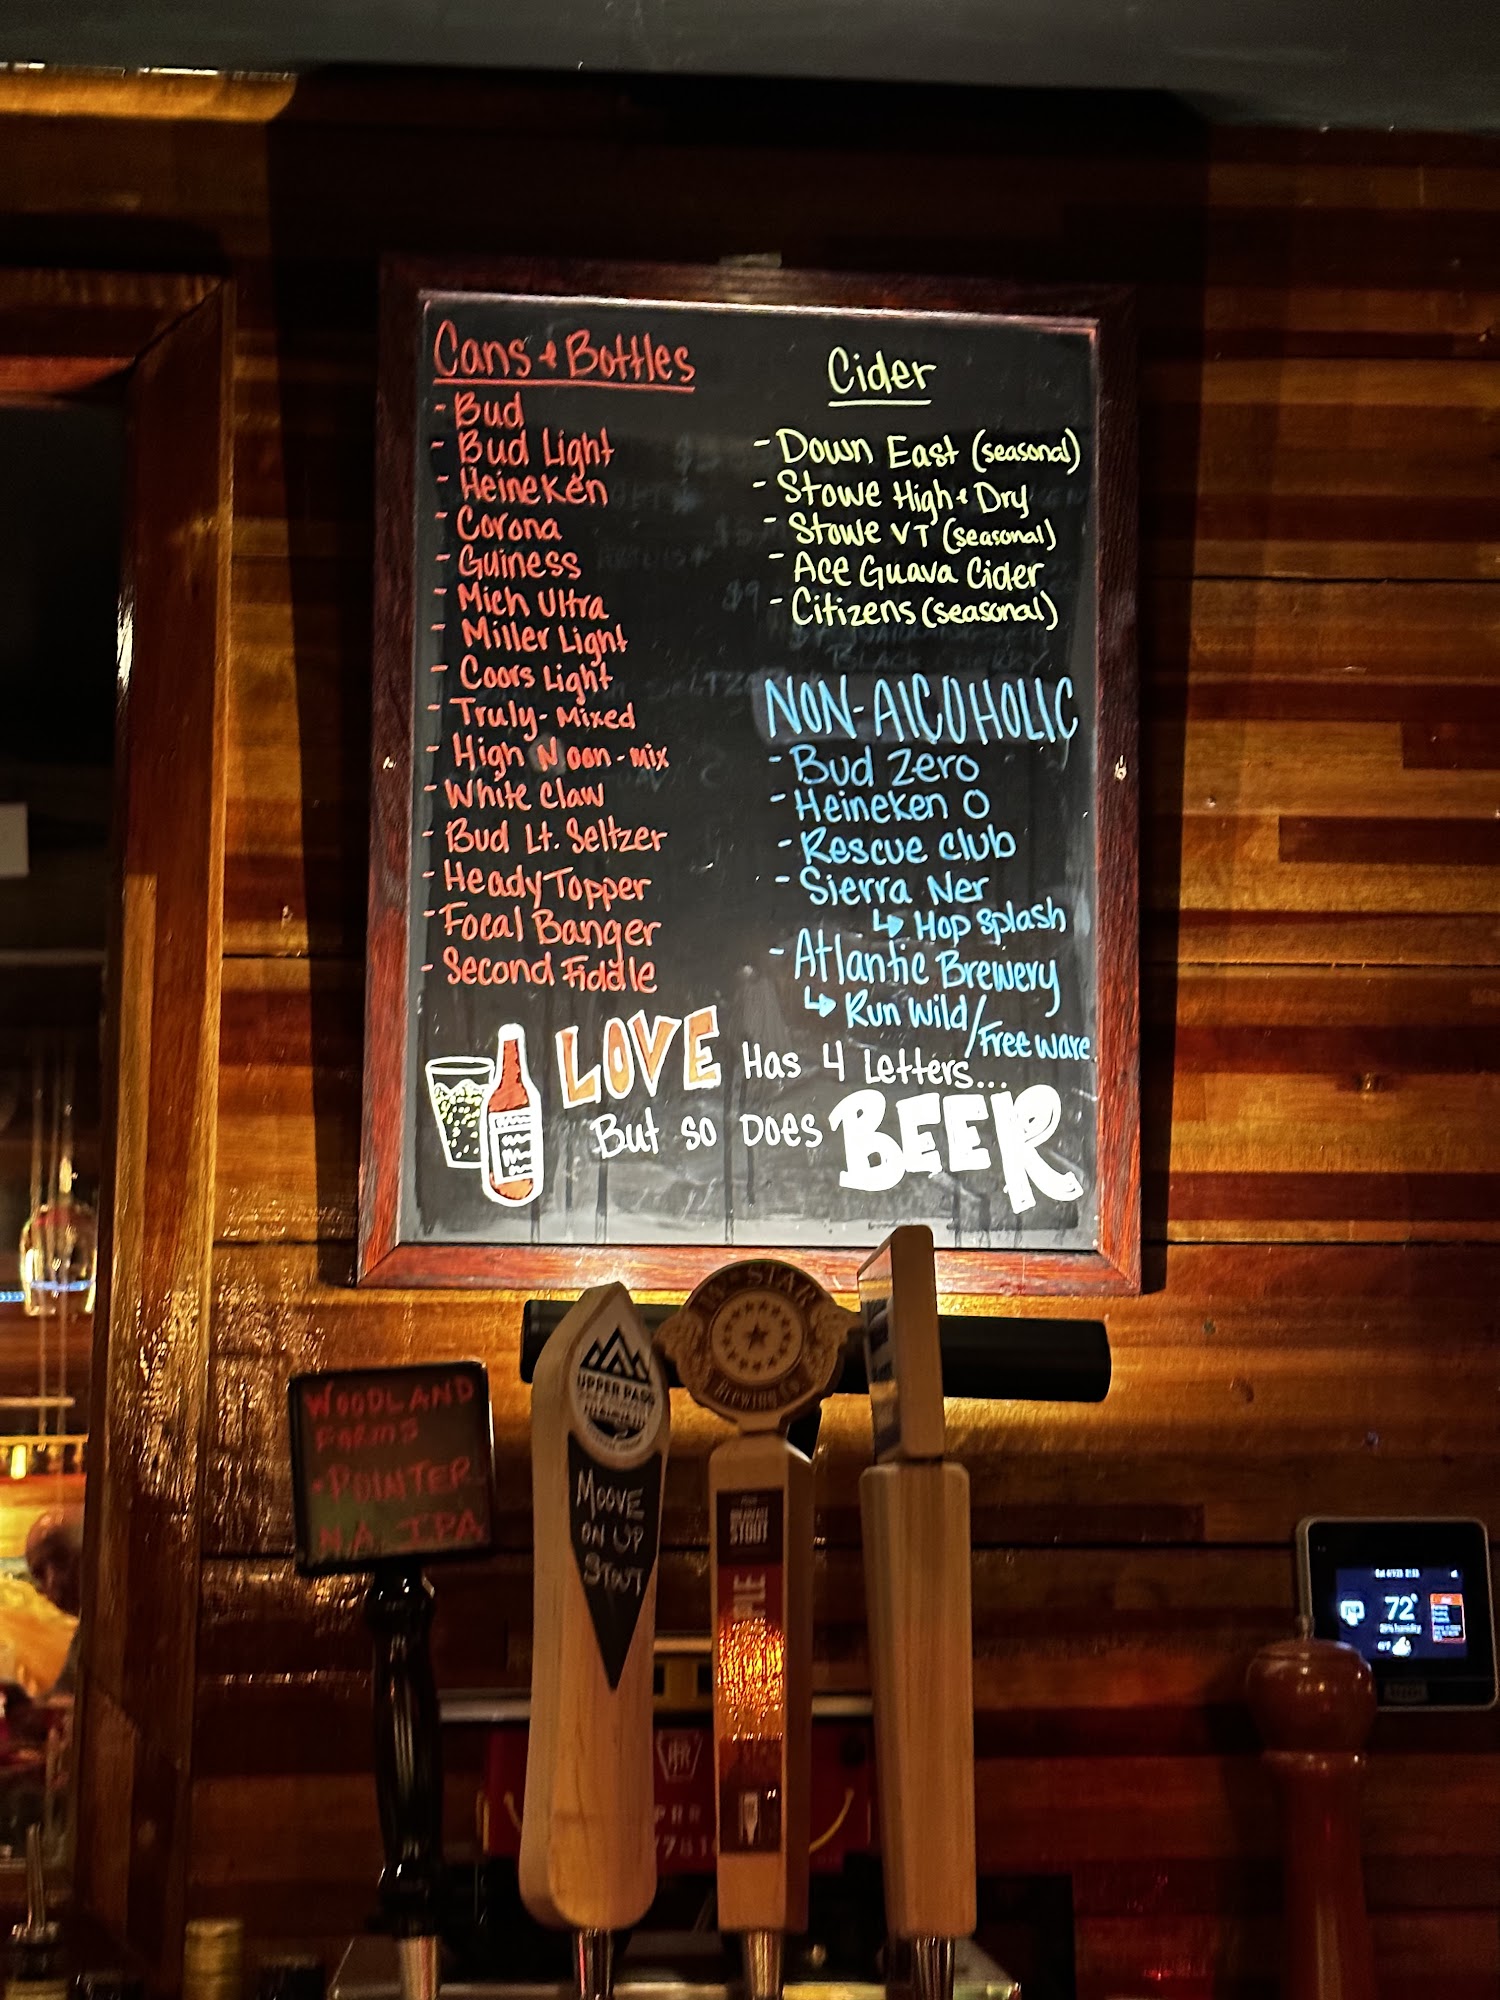 Cans & Bottles
- Bud
- Bud Light
- Heineken
- Corona
- Guiness
- Mich Ultra
- Miller Light
- Coors Light
- Truly - Mixed
- High Noon - mix
- White Claw
- Bud Lt. Seltzer
- Heady Topper
- Focal Banger
- Second Fiddle
Cider
- Down East (seasonal)
- Stowe High & Dry
- Stowe VT (seasonal)
- Ace Guava Cider
- Citizens (seasonal)
BLACK CHERRY
NON-AlCOHOLIC
- Bud Zero
- Heineken 0
- Rescue Club
- Sierra Ner
↳ Hop Splash
- Atlantic Brewery
↳ Run Wild/Free ware.
LOVE Has 4 Letters...
But so Does BEER
WOODLAND
FARMS
- POINTER
N.A. IPA
UPPER PASS
MOOVE
ON UP
STOUT
STAR
BREWING
STOUT
PLE
72°